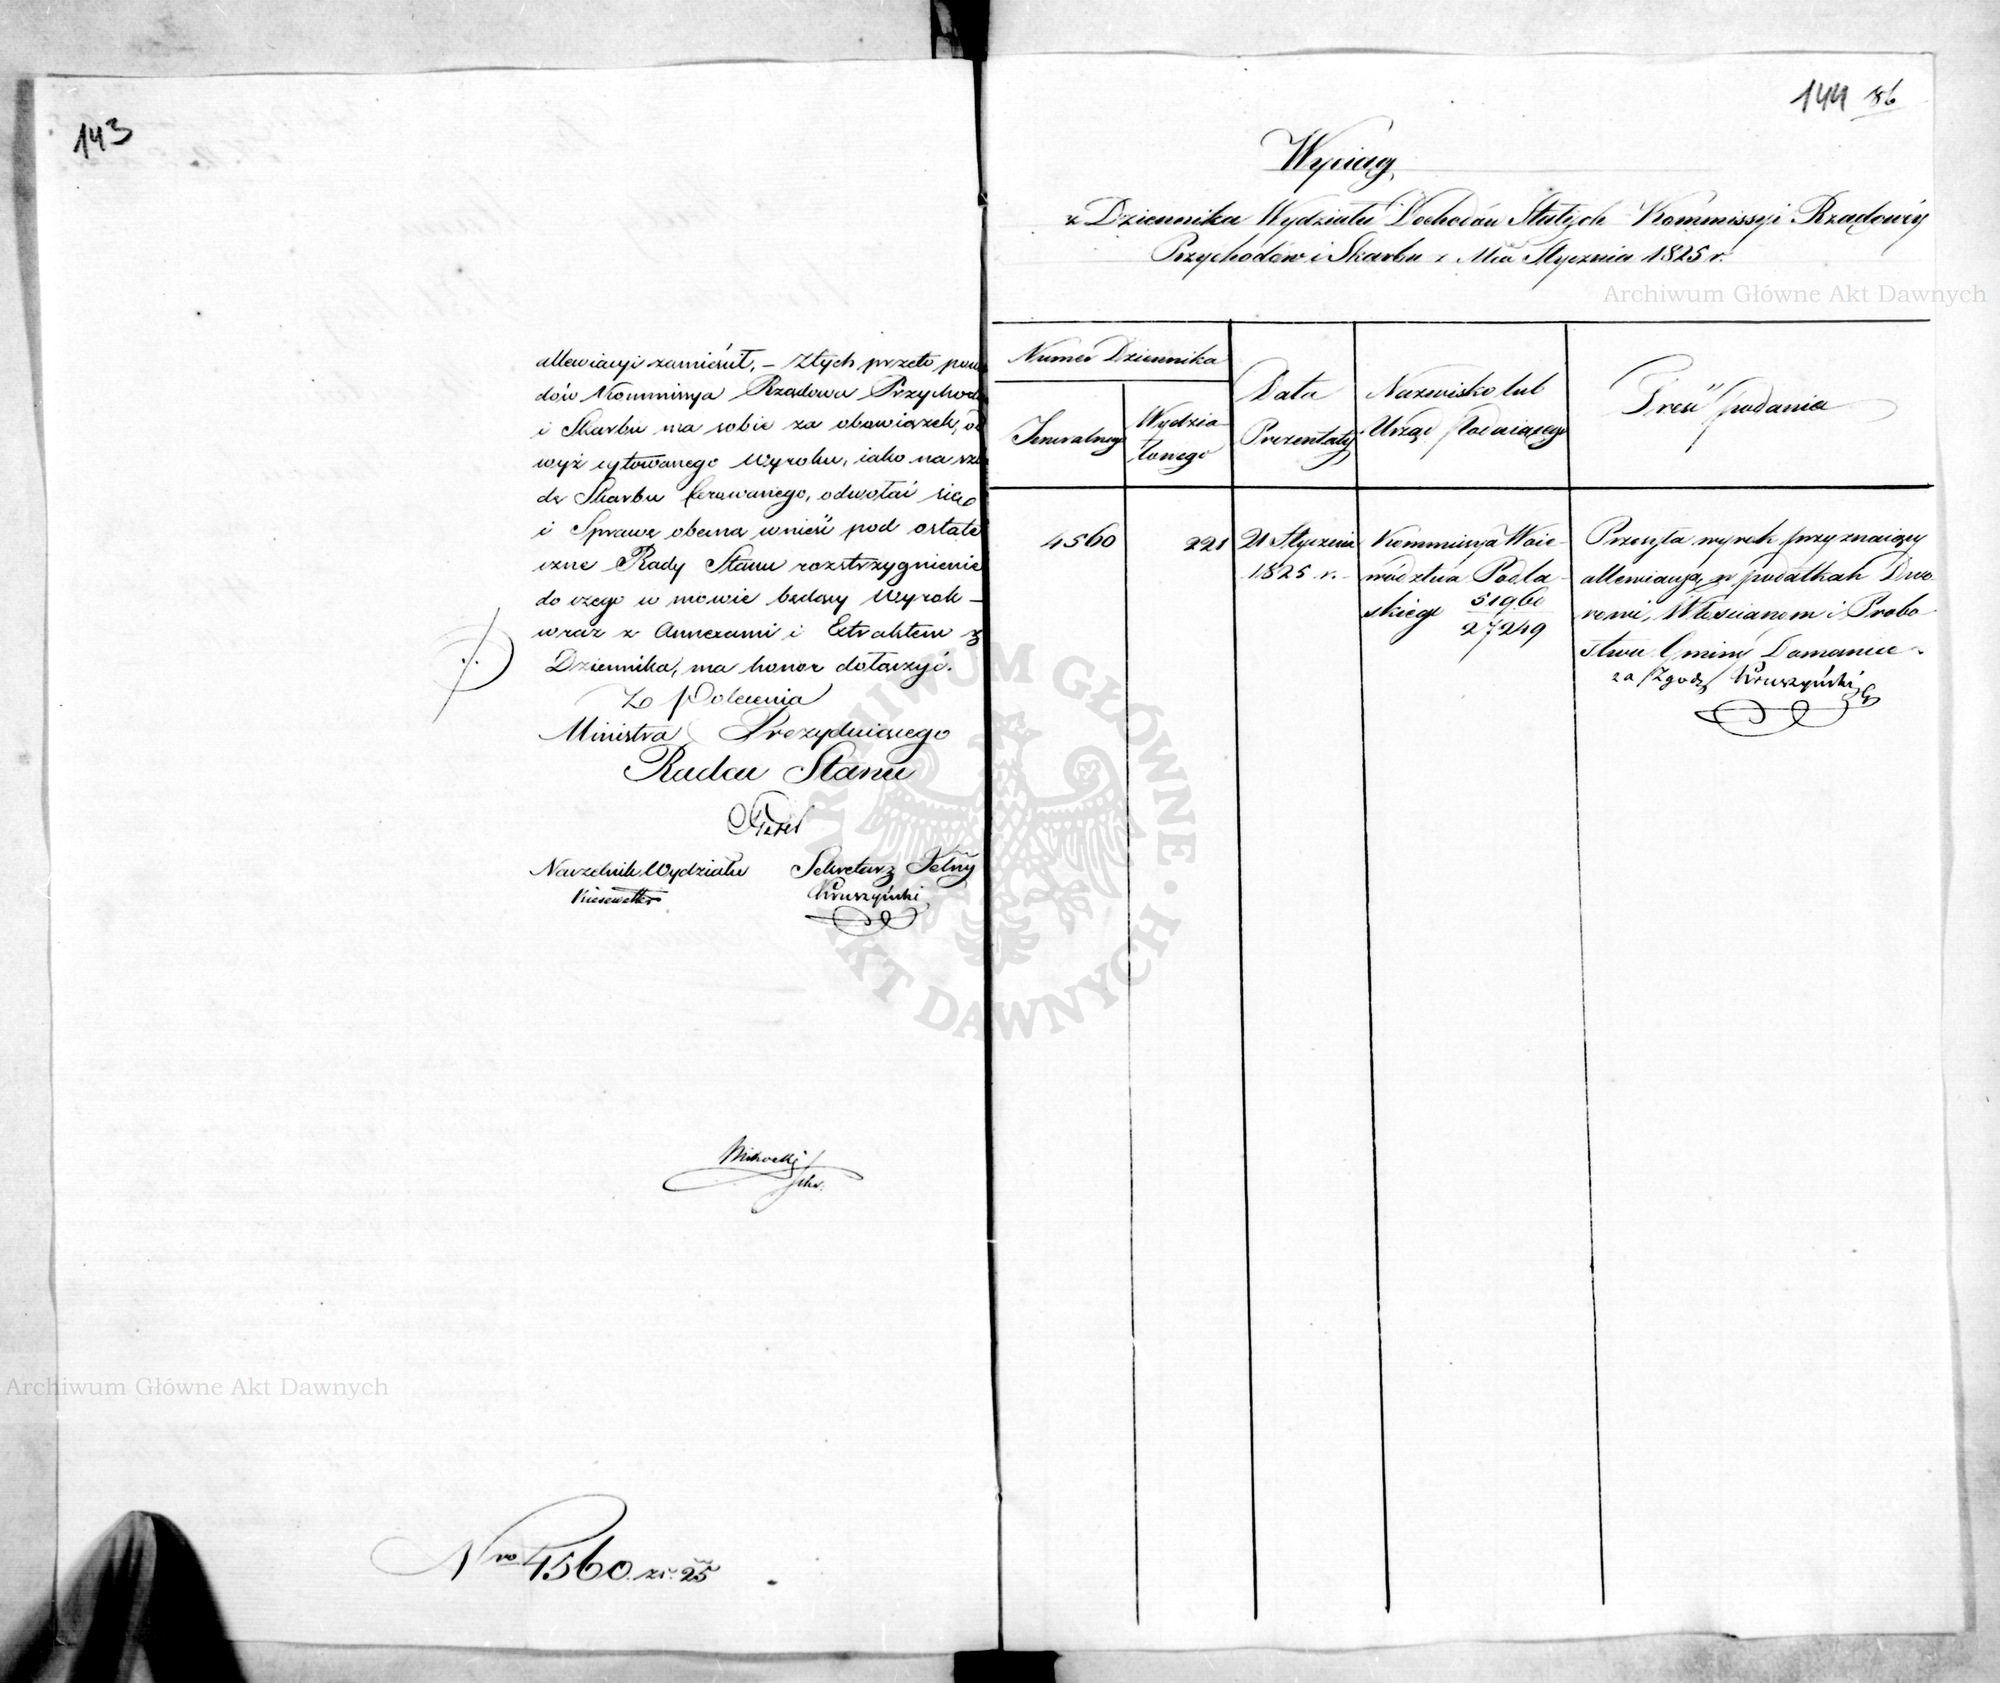 143
allewiacyi zamiesił, – Ztych przeto powo
dów Kommissya Rządowa Przychod
i Skarbu ma sobie za obowiązek, od
wyż cytowanego Wyroku, iako na szko
dę Skarbu ferowanego, odwołać się
i Sprawę obecną wnieść pod ostate
czne Rady Stanu rozstrzygnienie
do czego w mowie będący Wyrok –
wraz z Annexami i Extraktem z
Dziennika, ma honor dołączyć.
Z polecenia
Ministra Prezyduiącego
Radca Stanu
Naczelnik Wydziału Sekretarz Jelny
Kiesewetter Kruszyński
Nro 4560 zr. 25
144 86
Wyciąg
z Dziennika Wydziału Dochodów Stałych Kommissyi Rządowéy
Przychodów i Skarbu z Mca Stycznia 1825 r.
Archiwum Główne Akt Dawnych
Numer Dziennika
Jeneralnego
Wydzia-
łowego
Data
Prezentaty
Nazwisko lub
Urząd Podaiącego
Treść podania
4560
221
21 Stycznia
1825 r.
Kommissya Woie-
wództwa Podla-
skiego 51960
27249
Przesyła wyrok przyznaiący
allewiacyą w podatkach Dwo-
rowi, Włościanom i Probo-
stwu Gminy Domanice.
za Zgodę Kruszyński
ARCHIWUM GŁÓWNE
AKT DAWNYCH
Archiwum Główne Akt Dawnych